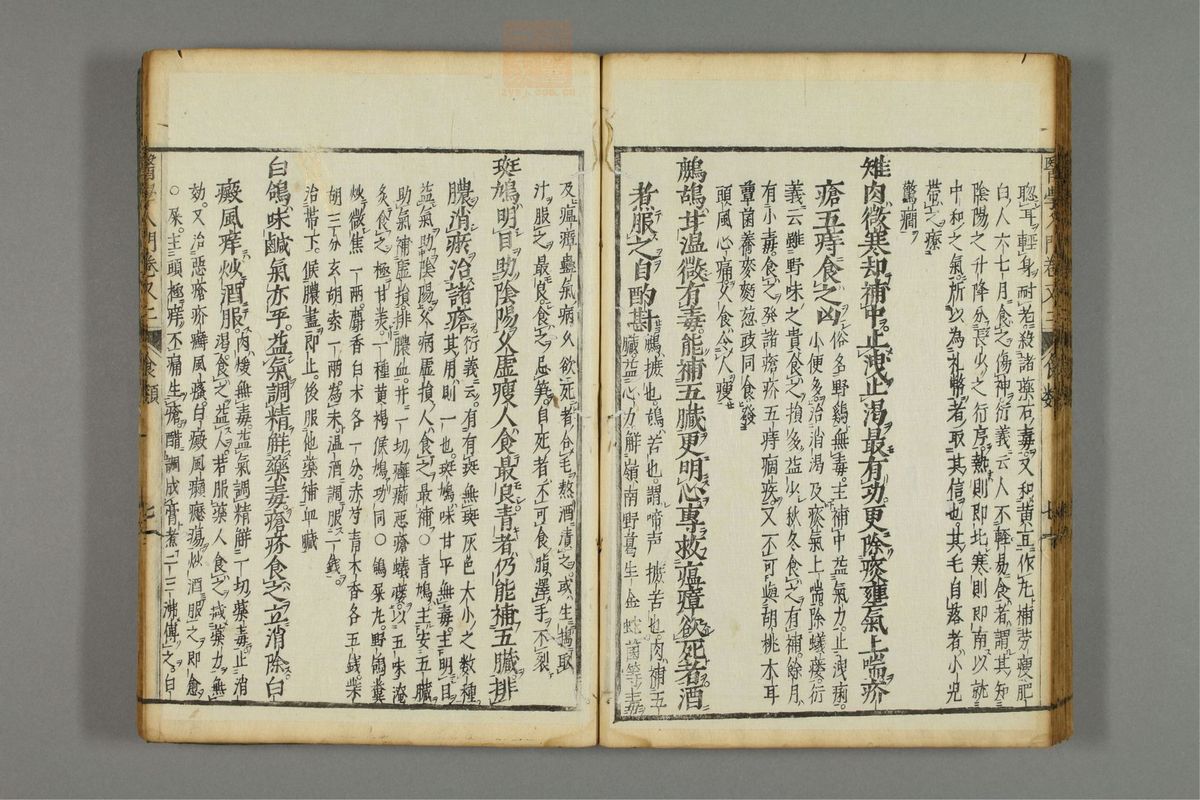 聰耳輕身耐老殺諸藥石毒又和黃豆作丸補勞瘦肥
白人六七月食之傷神衍義云人不輕易食者謂其知
陰陽之升降分長少之行序熱則即北寒則即南以就
中和之氣所以為礼幣者取其信也其毛自落者小兒
帶之療
驚癇
雉肉微寒却補中止洩止渴最有功更除痰壅氣上喘疥
瘡五痔食之凶俗名野鷄無毒主補中益氣力止洩痢
小便多治消渴及痰氣上喘除蟻瘻衍
義云雖野味之貴食之損多益少秋冬食之有補餘月
有小毒食之發諸瘡疥五痔痼疾又不可與胡桃木耳
蕈菌蕎麥麪葱豉同食發
頭風心痛久食令人瘦
鷓鴣甘温微有毒能補五臟更明心專救瘟瘴欲死者酒
煮服之自酌斟鷓摭也鴣苦也謂啼声摭苦也肉補五
臟益心力解嶺南野葛生金蛇菌等毒
及瘟瘴蠱氣病久欲死者合毛熬酒漬之或生搗取
汁服之最良食之忌笋自死者不可食脂澤手不裂
斑鳩明目助陰陽久虛瘦人食最良青者仍能補五臟排
膿消瘀治諸瘡衍義云有有斑無斑灰色大小之数種
其用則一也斑鳩味甘平無毒主明目
益氣助陰陽久病虛損人食之最補○青鳩主安五臟
助氣補虛損排膿血并一切瘡癤惡瘡蟻瘻以五味淹
炙食之極甘美一種黃褐侯鳩功同○鴿屎丸野鴿糞
炒微焦一兩麝香白朮各一分赤芍青木香各五錢柴
胡三分玄胡索一兩為末温酒調服一錢
治帶下候膿盡即止後服他藥補血臟
白鴿味鹹氣亦平益氣調精解藥毒瘡疥食之立消除白
癜風痒炒酒服肉煖無毒益氣調精解一切藥毒止消
渴食之益人若服藥人食之減藥力無
効又治惡瘡疥癬風瘙白癜風癩癧瘍炒酒服之即愈
○屎主頭極痒不痛生瘡醋調成膏煮二三沸傅之白
醫學入門卷又二
食類
醫學入門卷又二
食類